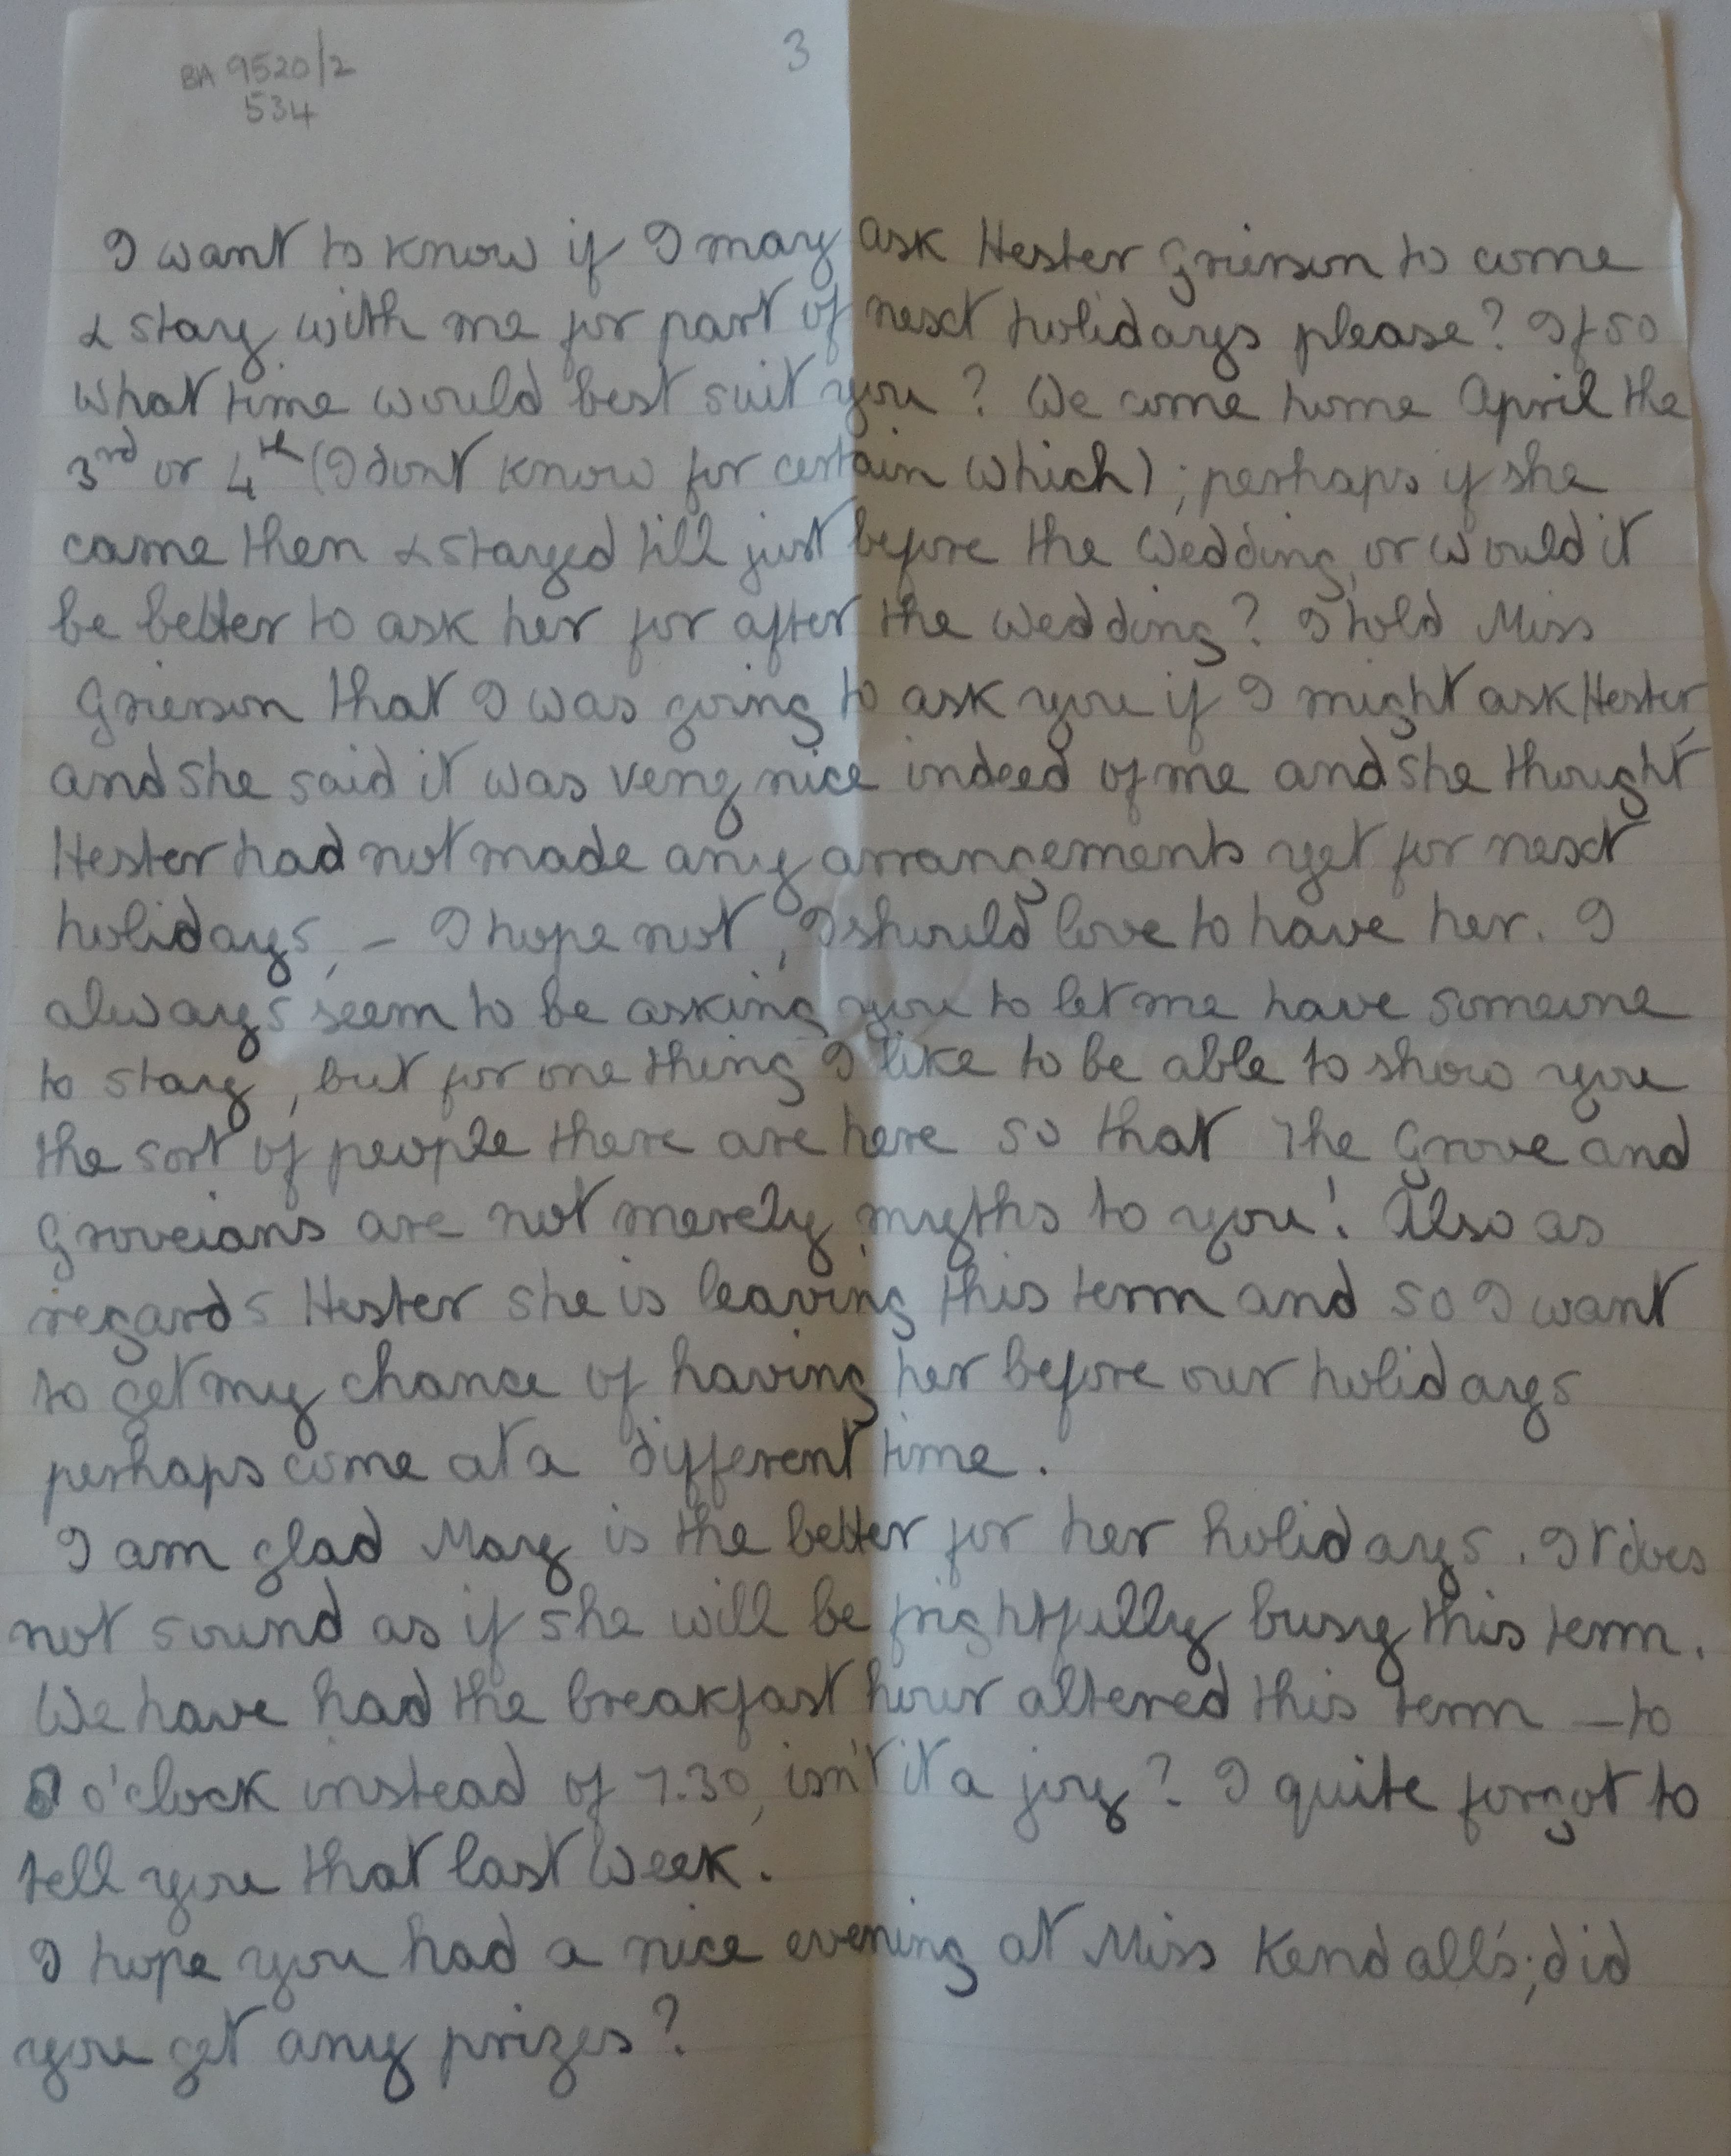 BA 9520/2
534
3
I want to know if I may ask Hester Grierson to come
& stay with me for part of next holidays please? If so
what time would best suit you? We come home April the
3rd or 4th (I dont know for certain which); perhaps if she
came then & stayed till just before the wedding, or would it
be better to ask her for after the wedding? I told Miss
Grierson that I was going to ask you if I might ask Hester,
and she said it was very nice indeed of me and she thought
Hester had not made any arrangements yet for next
holidays, – I hope not, I should love to have her. I
always seem to be asking you to let me have someone
to stay, but for one thing I like to be able to show you
the sort of people there are here so that The Grove and
Groveians are not merely myths to you! Also as
regards Hester she is leaving this term and so I want
to get my chance of having her before our holidays
perhaps come at a different time.
I am glad Mary is the better for her holidays. It does
not sound as if she will be frightfully busy this term.
We have had the breakfast hour altered this term – to
8 o'clock instead of 7.30, isn't it a joy? I quite forgot to
tell you that last week.
I hope you had a nice evening at Miss Kendall's; did
you get any prizes?